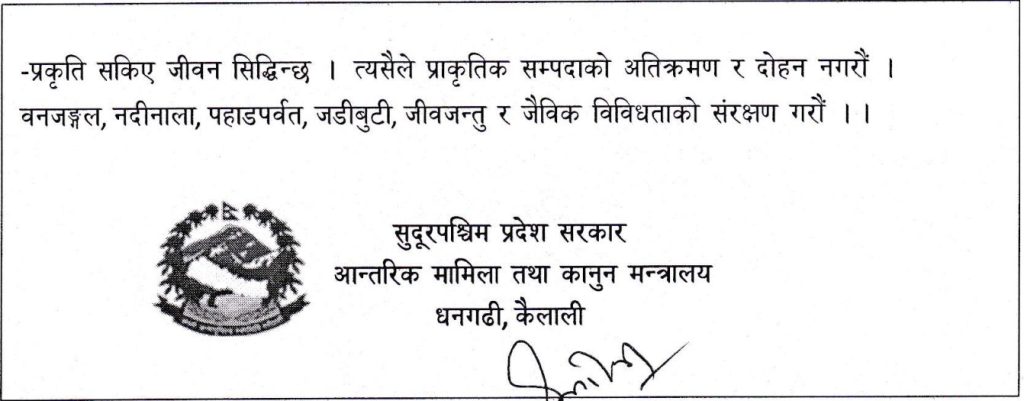 -प्रकृति सकिए जीवन सिद्धिन्छ । त्यसैले प्राकृतिक सम्पदाको अतिक्रमण र दोहन नगरौं ।
वनजङ्गल, नदीनाला, पहाडपर्वत, जडीबुटी, जीवजन्तु र जैविक विविधताको संरक्षण गरौं । ।
सुदूरपश्चिम प्रदेश सरकार
आन्तरिक मामिला तथा कानुन मन्त्रालय
धनगढी, कैलाली